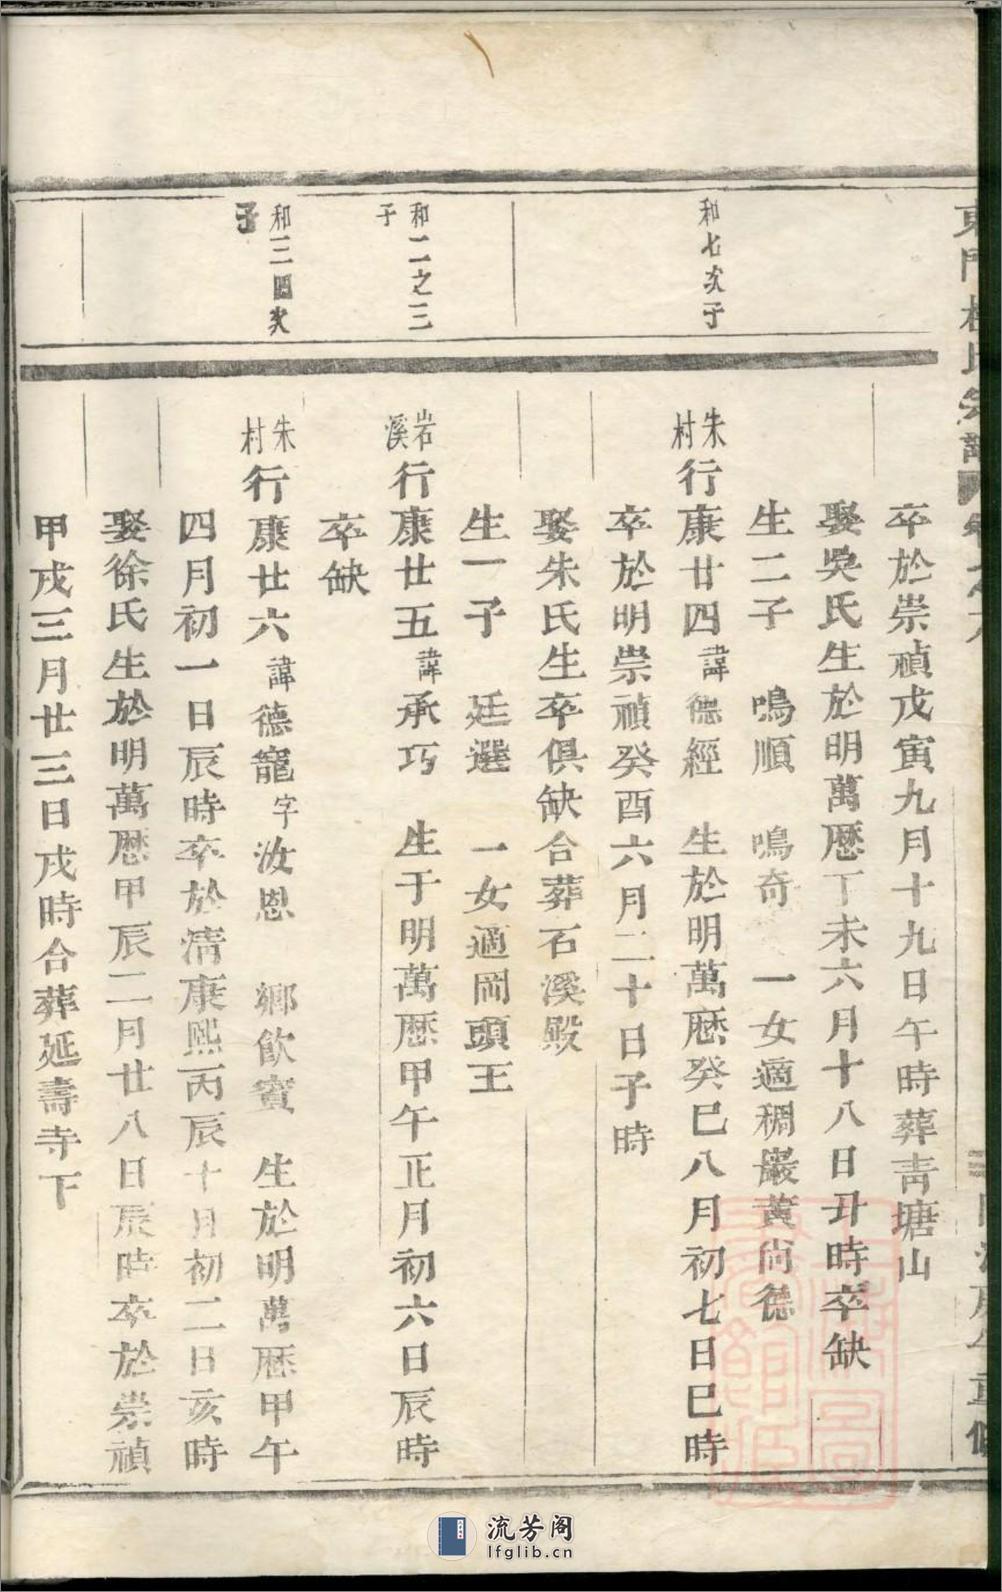 和七次子
和二之三
子
和三四次
子
卒於崇禎戊寅九月十九日午時葬青塘山
娶吳氏生於明萬歷丁未六月十八日丑時卒缺
生二子 鳴順 鳴奇 一女適稠巖黃尚德
朱村 行康廿四諱德經 生於明萬歷癸巳八月初七日巳時
卒於明崇禎癸酉六月二十日子時
娶朱氏生卒俱缺合葬石溪殿
生一子 廷選 一女適岡頭王
岩溪 行康廿五諱承巧 生于明萬歷甲午正月初六日辰時
卒缺
朱村 行康廿六諱德寵字汝恩 鄉飲賓 生於明萬歷甲午
四月初一日辰時卒於清康熙丙辰十月初二日亥時
娶徐氏生於明萬歷甲辰二月廿八日辰時卒於崇禎
甲戌三月廿三日戌時合葬延壽寺下
流芳阁
lfglib.cn